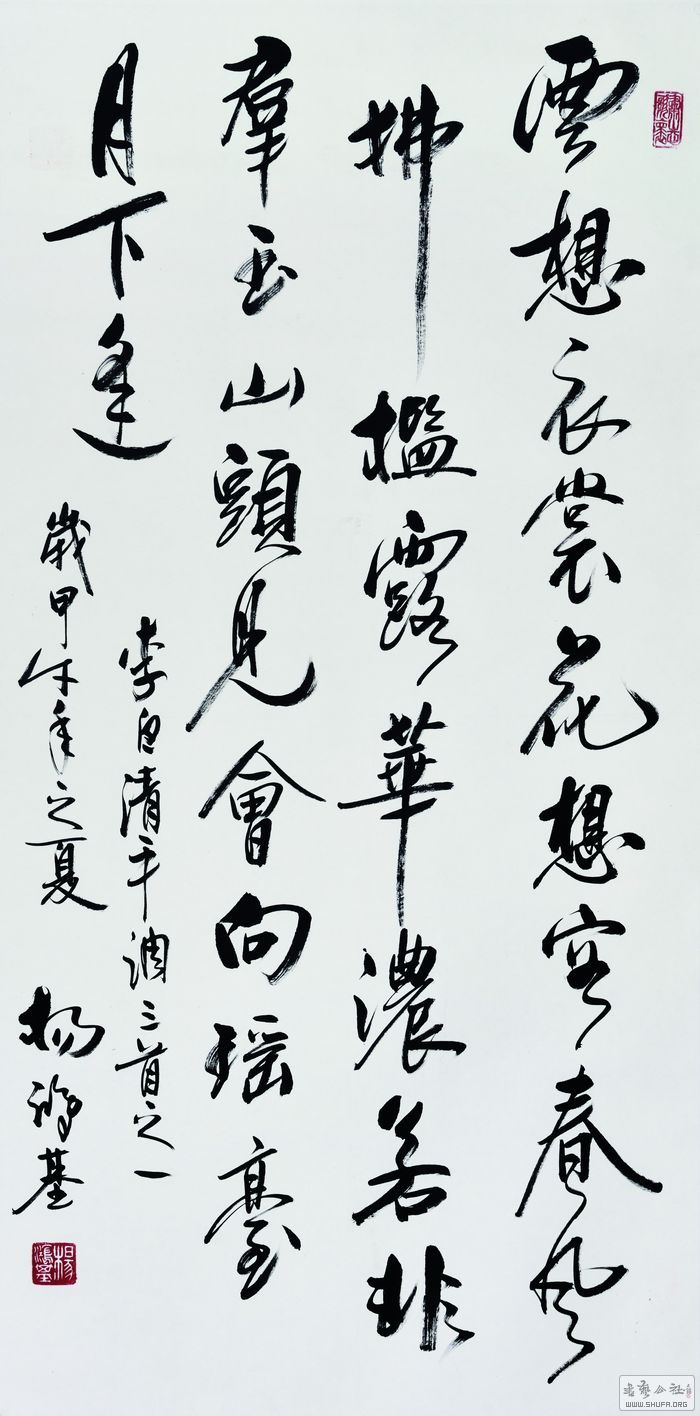 雲想衣裳花想容春風
拂檻露華濃若非
羣玉山頭見會向瑶臺
月下逢
李白清平調三首之一
歲甲午年之夏
楊鴻基
楊鴻基
WWW.SHUFA.ORG